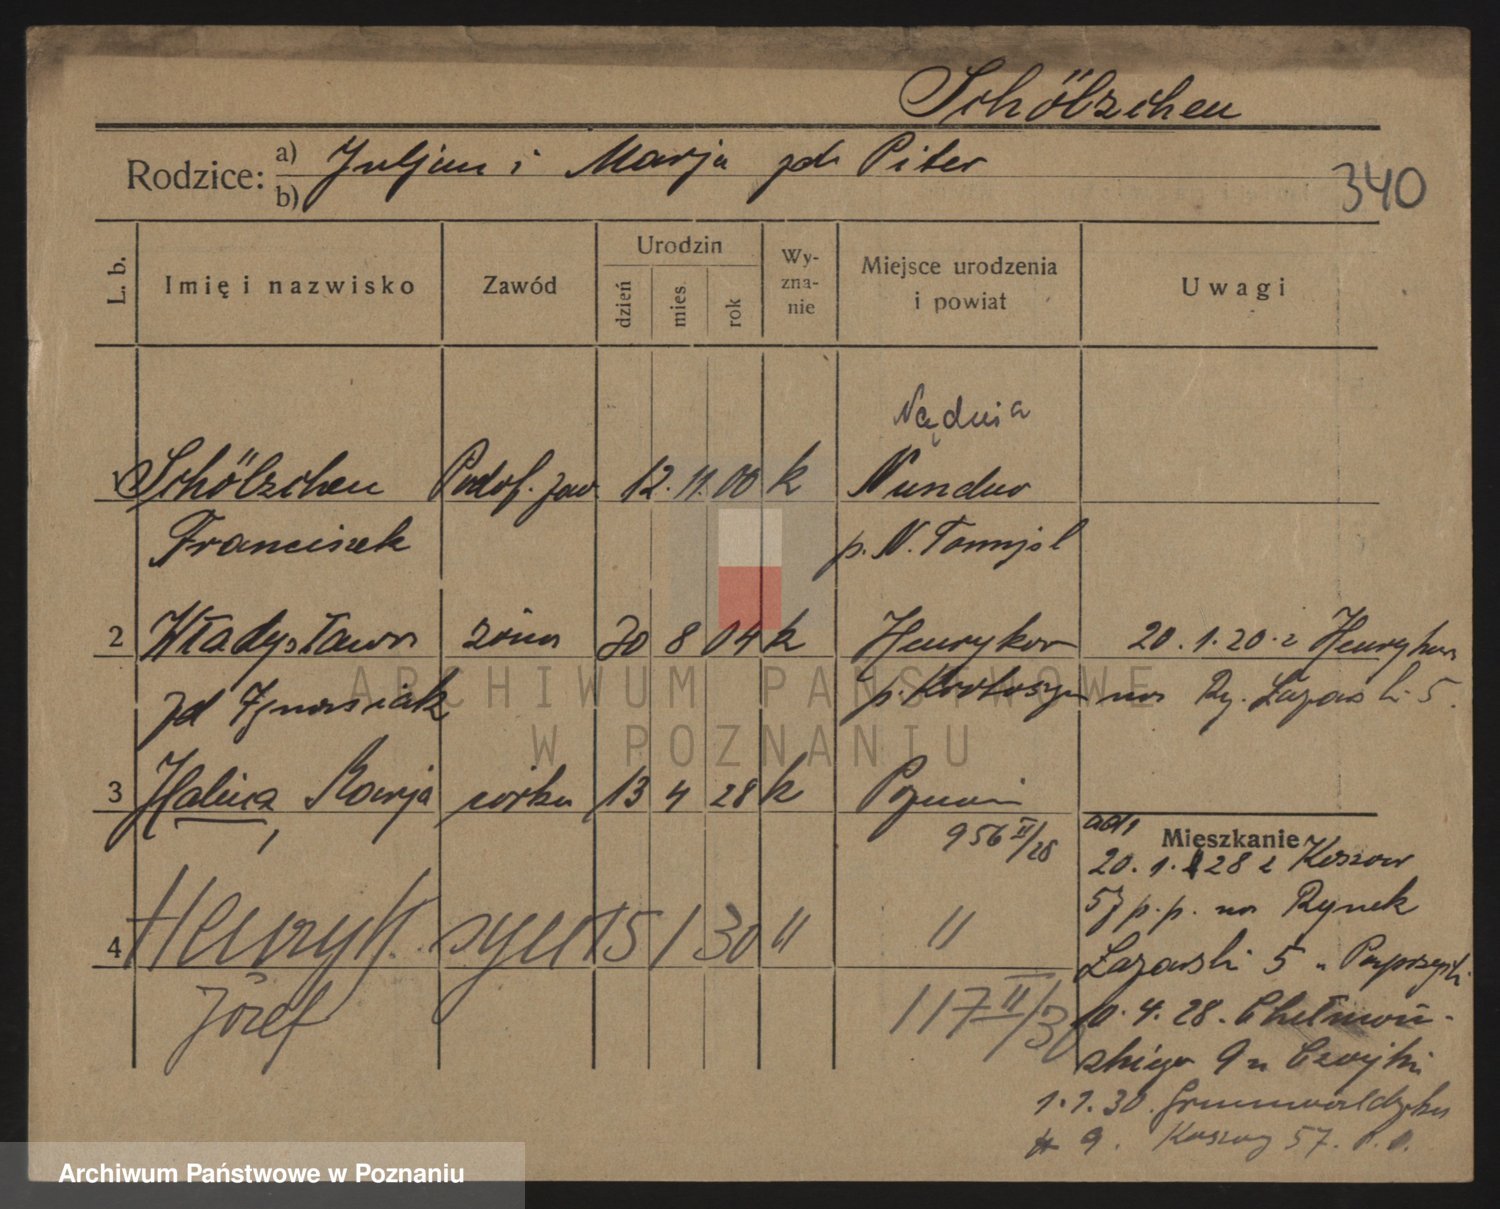 Schölzchen
Rodzice: a) Juljan i Marja zd Piter
b)
340
L. b.
Imię i nazwisko
Zawód
Urodzin
dzień
mies.
rok
Wy-
zna-
nie
Miejsce urodzenia
i powiat
Uwagi
Nądnia
Schölzchen Podof. zaw. 12. 11. 00 k
Franciszek p. N. Tomyśl
2 Władysława żona 30 8 04 k Henryków 20. 1. 20. z Henryków
zd Ignasiak p. Krotoszyn na Ry. Łazarski 5.
3 Halina, Marja córka 13 4 28 k Poznań
956 II/28
4 Henryk syn 15 1 30 " "
Józef 117 II/30
Mieszkanie
20. 1. 28 z Koszar
57 p. p. na Rynek
Łazarski 5
10. 4. 28. Chełmoń-
skiego 9 u Czajki
1. 7. 30. Grunwaldzka
Koszary 57. p. p.
ARCHIWUM PAŃSTWOWE
W POZNANIU
Archiwum Państwowe w Poznaniu